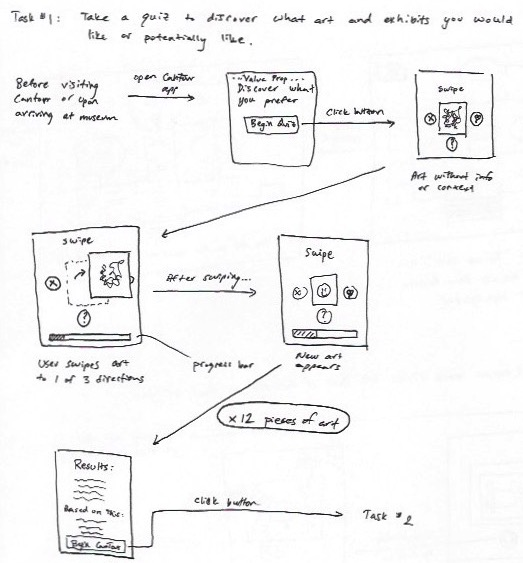 Task #1: Take a quiz to discover what art and exhibits you would
like or potentially like.
Before visiting
Cantor or upon
arriving at museum
open Cantor
app
...Value Prop...
Discover what
you prefer
Begin Quiz
Click button
Swipe
x
?
Art without info
or context
Swipe
x
?
User swipes art
to 1 of 3 directions
progress bar
After swiping...
Swipe
x
?
New art
appears
x 12 pieces of art
Results:
Based on this:
Begin
click button
Task #2